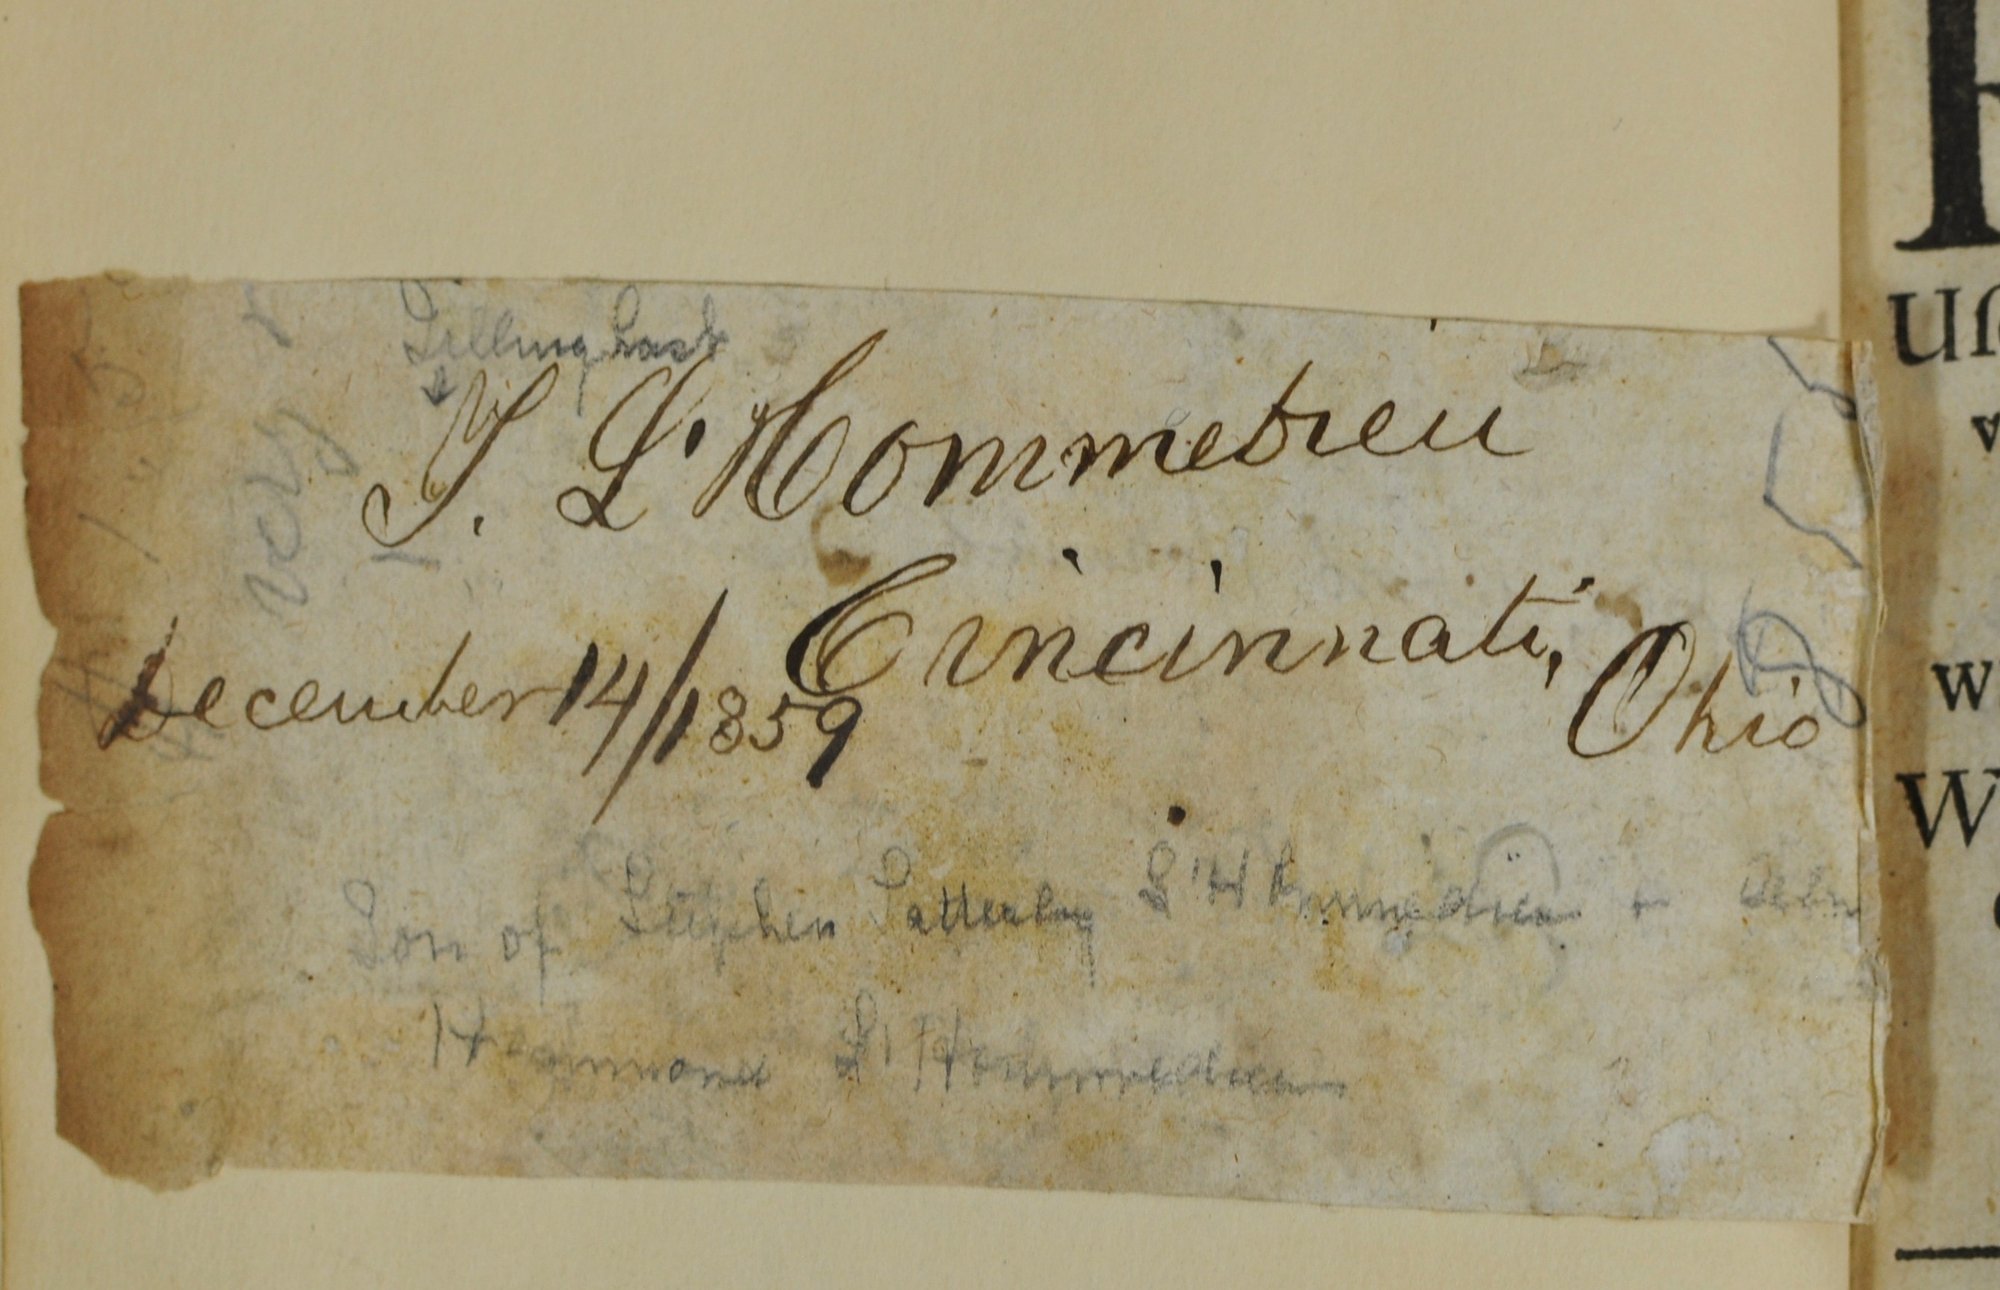 Tillinghast
T. L'Hommedieu
Cincinnati, Ohio
December 14/1859
very
Son of Stephen Satterley L'Hommedieu
Hammond L'Hommedieu
W